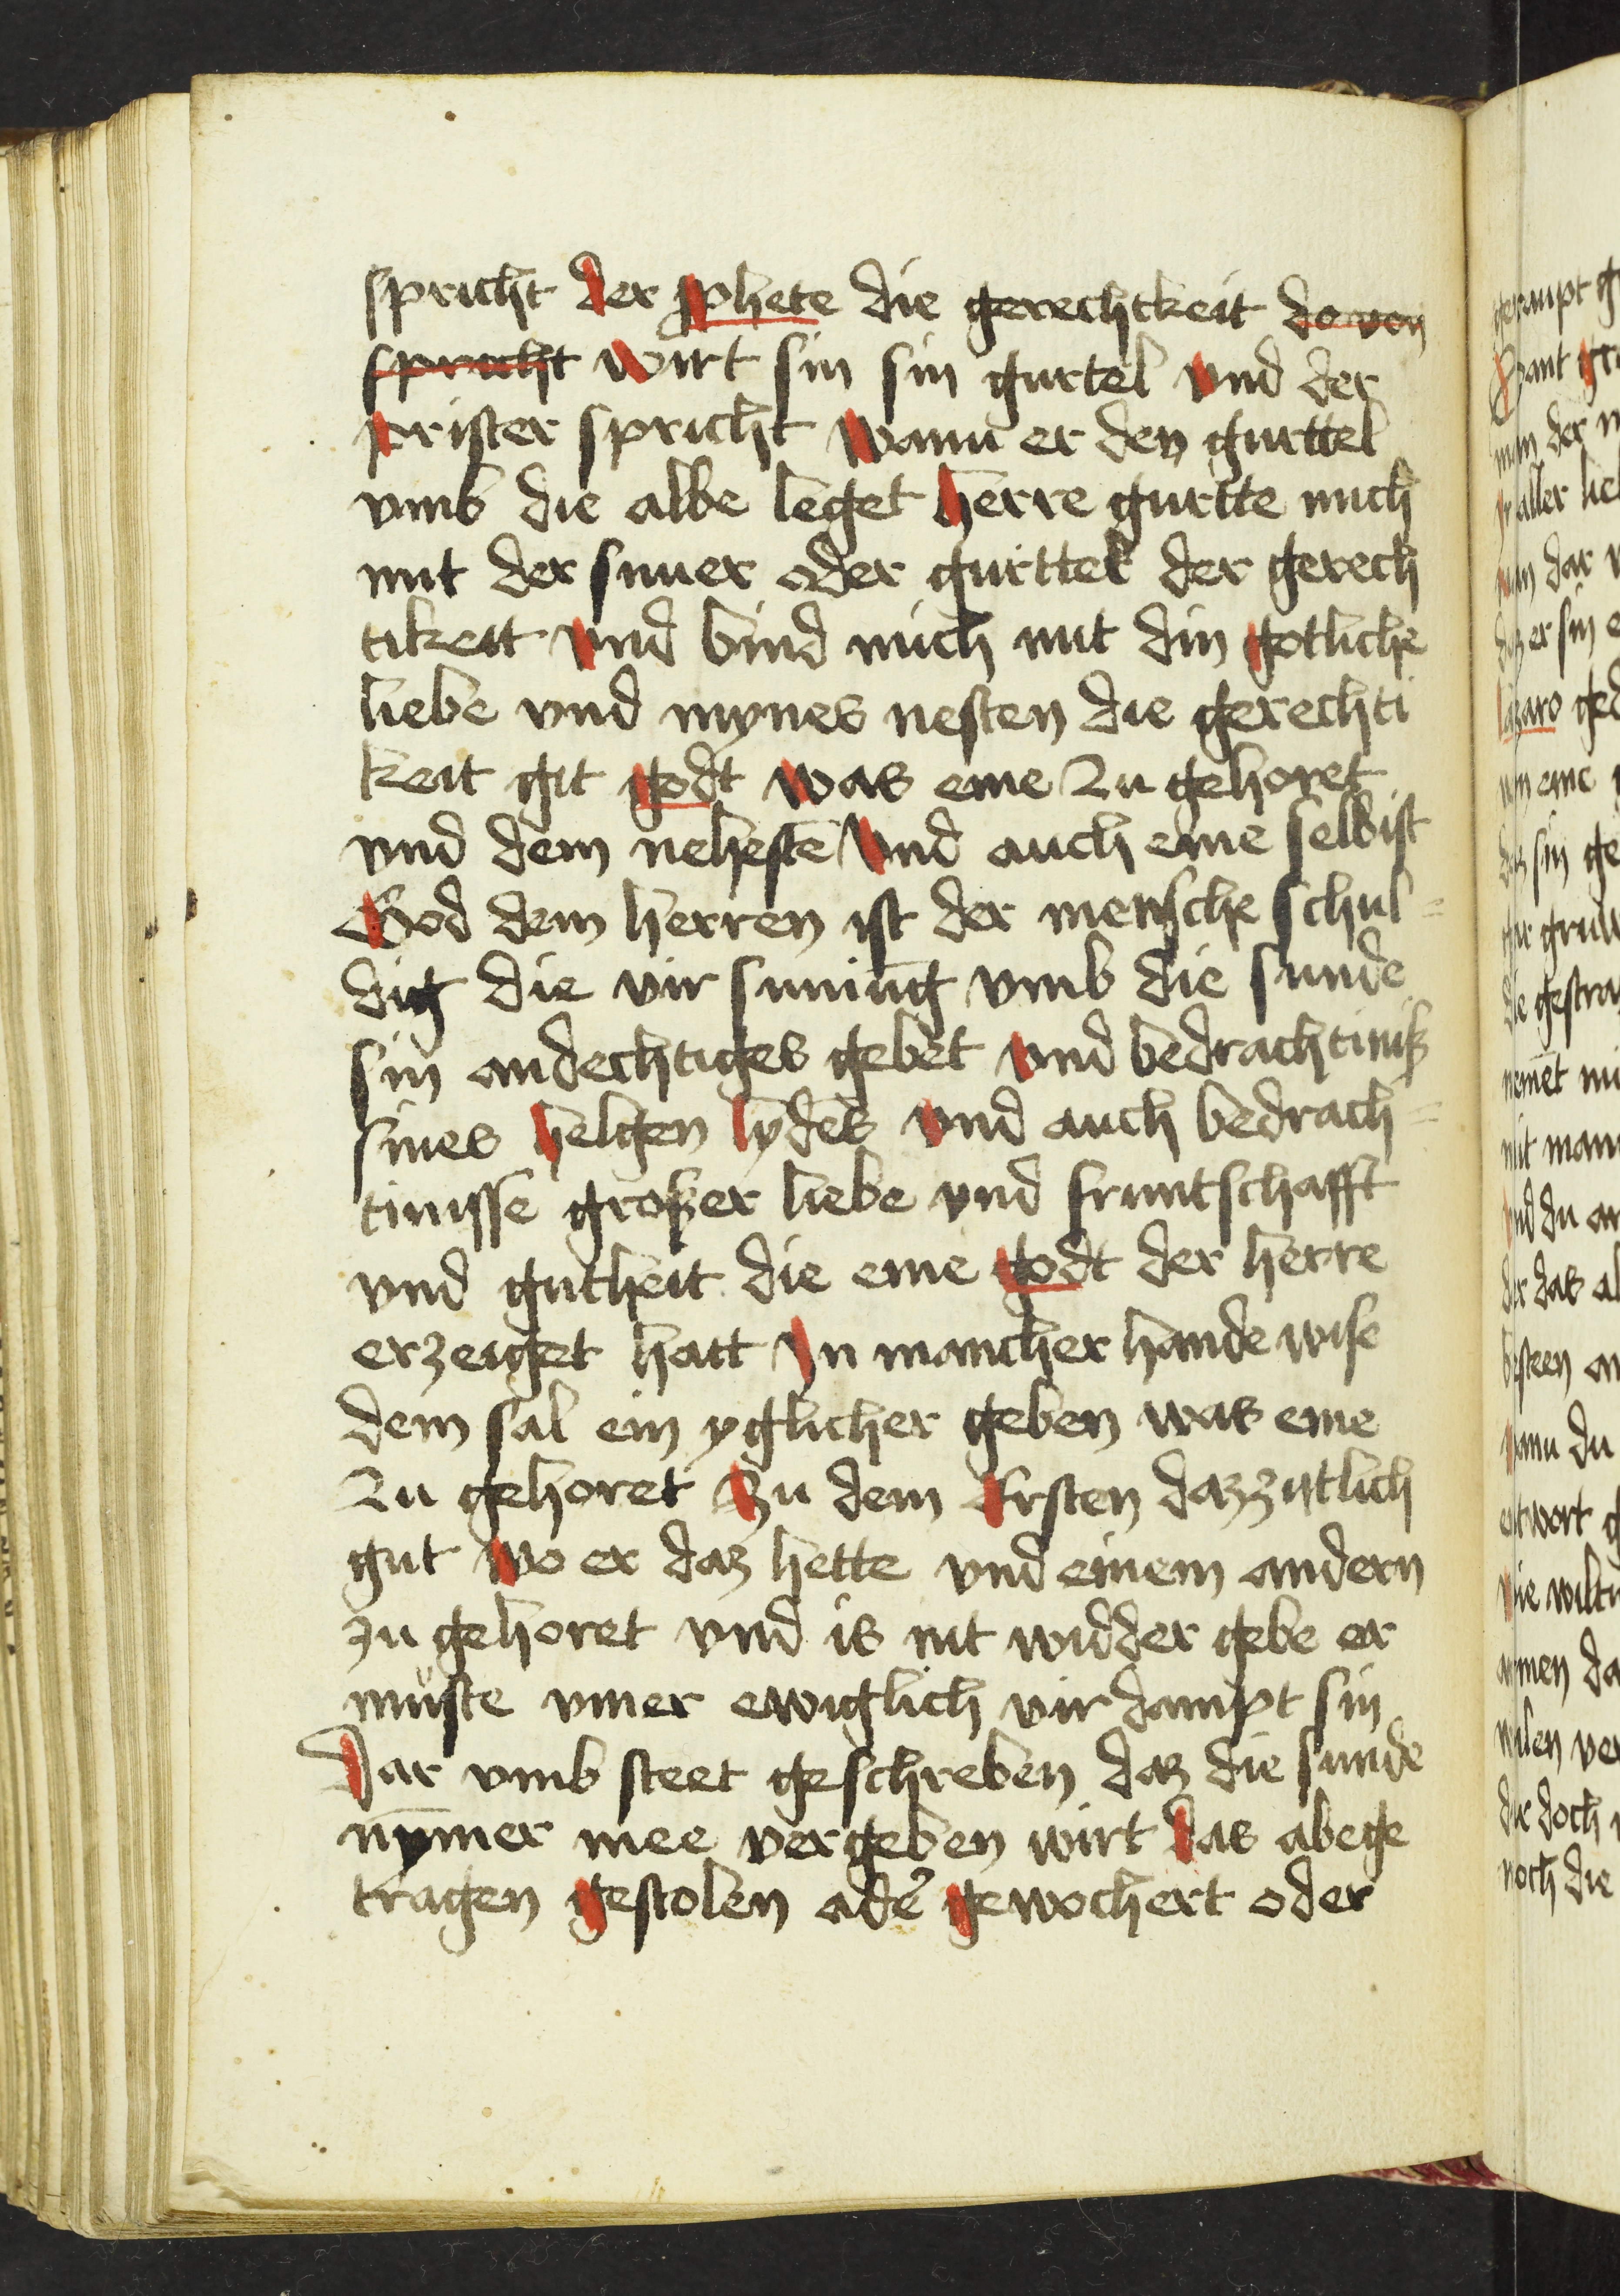 spricht der ꝓphete die gerechtkeit do von
spricht wirt sin sin gurtel vnd der
prister spricht wann er den gurttel
vmb die albe leget herre gurtte mich
mit der snuer oder gurttel der gerech
tikeit vnd bind mich mit din gotliche
liebe vnd mynes nesten die gerechti
keit git godt was eme zu gehoret
vnd dem nehestē vnd auch eme selbist
God dem herren ist der mensche schul=
dig die vir sunūg vmb die sunde
sin andechtiges gebet vnd bedrachtiniß
sines helgen lydēs vnd auch bedrach=
tinisse großer liebe vnd fruntschafft
vnd gutheit die eme godt der herre
erzeiget hatt yn mancher hande wise
dem sal ein yglicher geben was eme
zu gehoret Zu dem Ersten daz zytlich
gut wo er daz hette vnd einem andern
zu gehoret vnd is nit widder gebe er
müste ymer ewiglich vir dampt sin
Dar vmb steet geschreben daz die sunde
nȳmer mee vergeben wirt das abege
tragen gestolen adeʼ gewochert oder